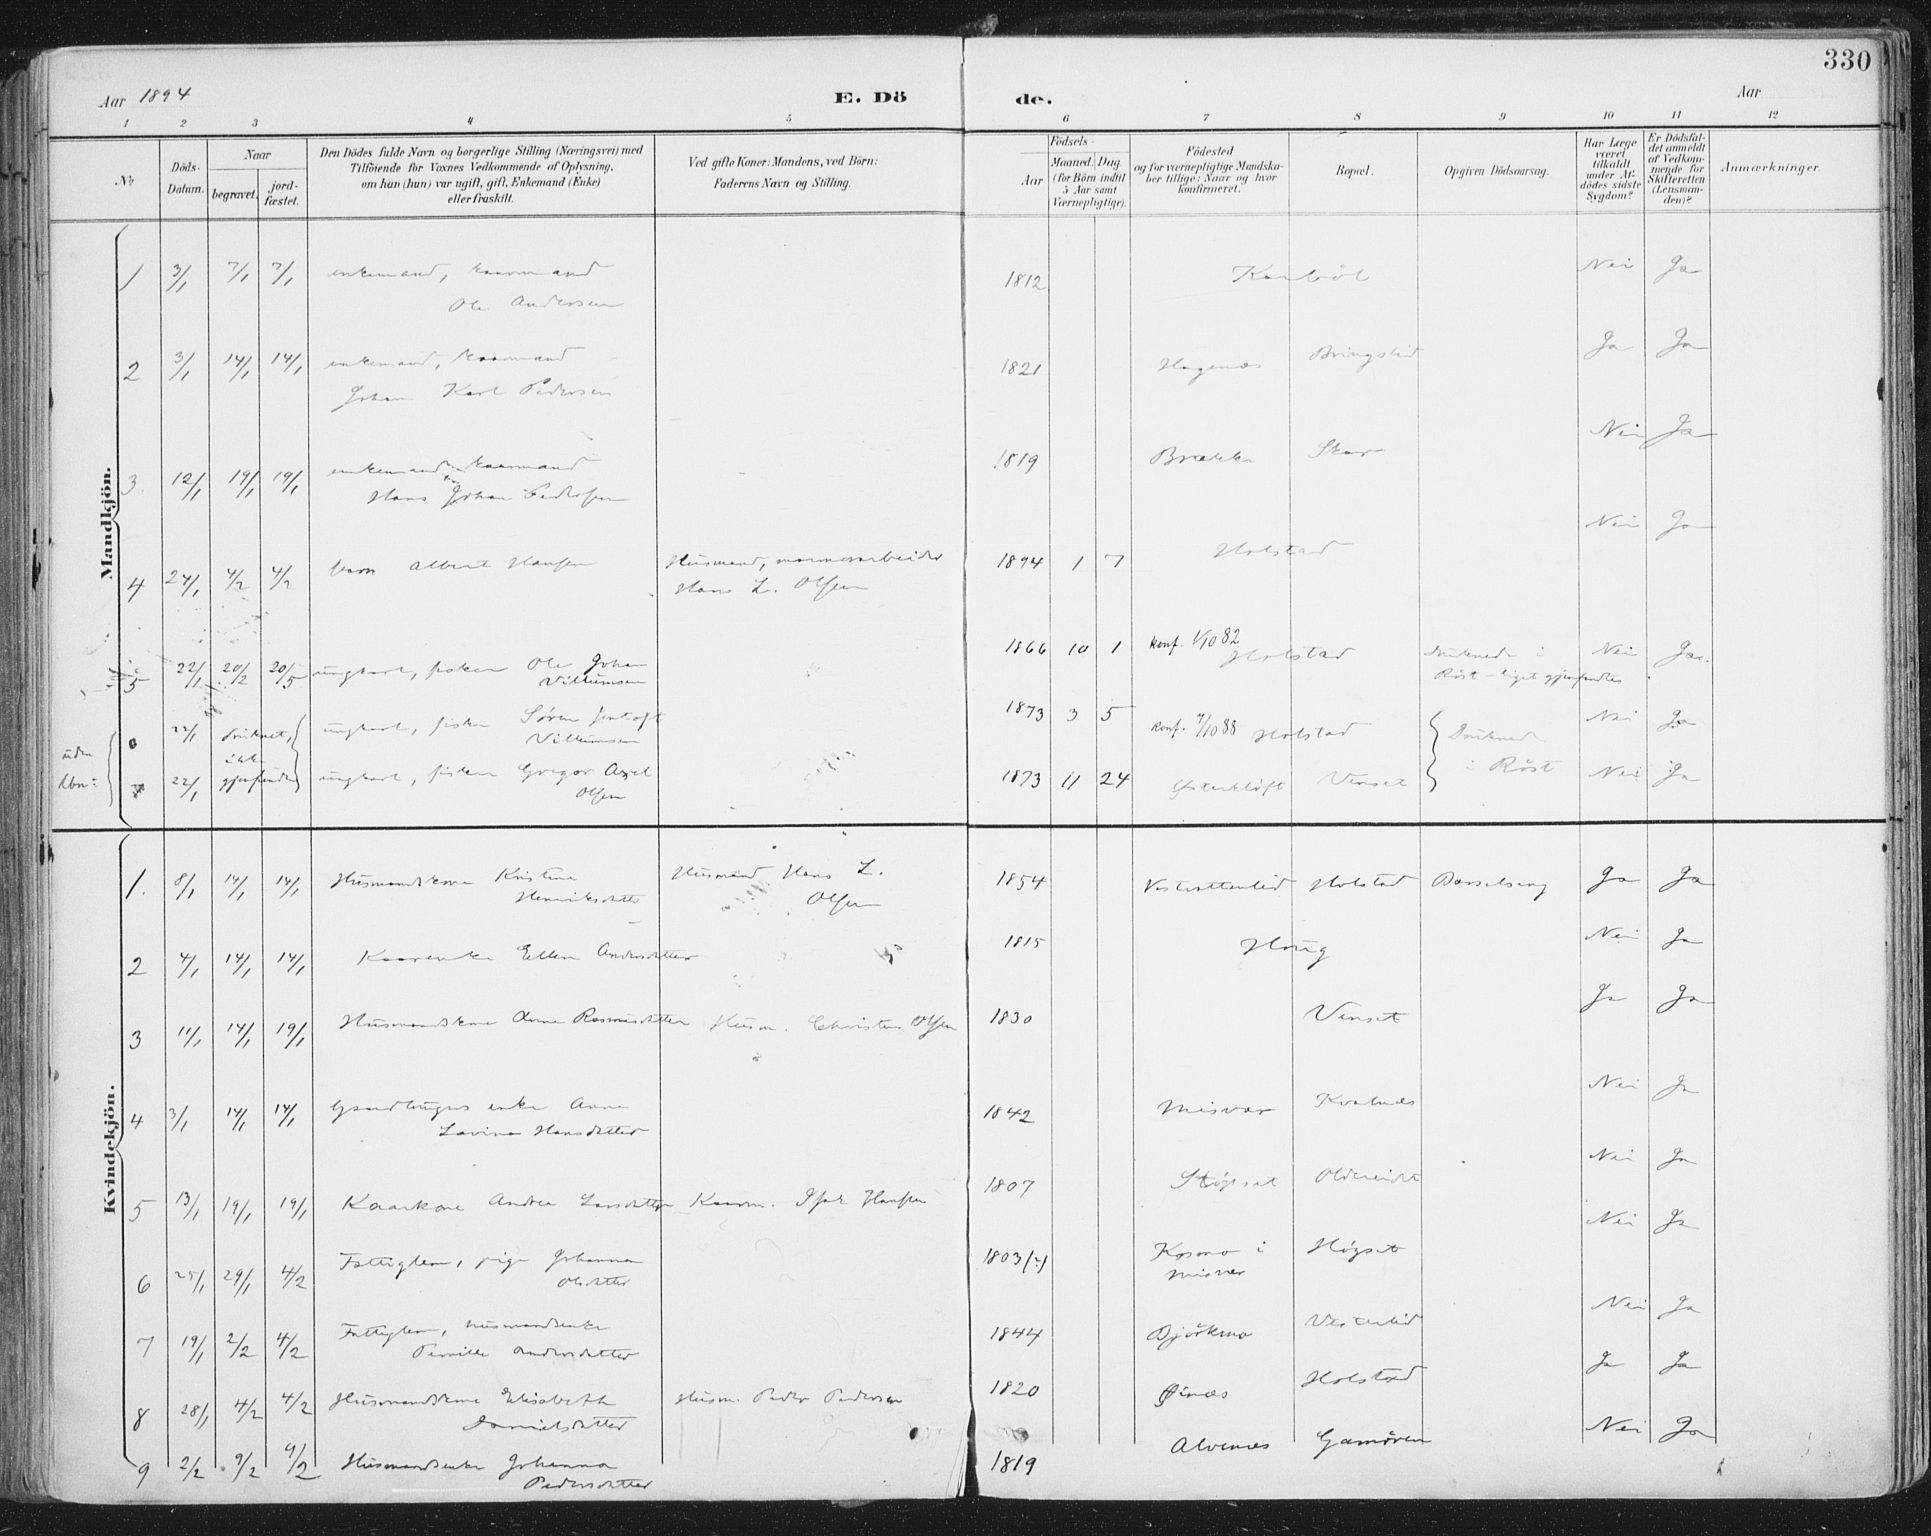 330
Aar 1894
E. Dö de.
Aar
1 2 3 4 5 6 7 8 9 10 11 12
No
Döds-Datum.
Naar
begravet.
jord-fæstet.
Den Dödes fulde Navn og borgerlige Stilling (Næringsvei) med
Tilföiende for Voxnes Vedkommende af Oplysning,
om han (hun) var ugift, gift, Enkemand (Enke)
eller fraskilt.
Ved gifte Koner: Mandens, ved Börn:
Faderens Navn og Stilling.
Födsels-
Aar
Maaned. Dag.
(for Börn indtil
5 Aar samt
Værnepligtige).
Födested
og for værnepligtige Mandska-
ber tillige: Naar og hvor
konfirmeret.
Bopæl.
Opgiven Dödsaarsag.
Har Læge
været
tilkaldt
under Af-
dödes sidste
Sygdom?
Er Dödsfal-
det anmeldt
af Vedkom-
mende for
Skifteretten
(Lensman-
den)?
Anmærkninger.
Mandkjön.
1 3/1 7/1 7/1 enkemand, kaarmand 1812 Nei Ja
Ole Andersen
2 3/1 14/1 14/1 enkemand, kaarmand 1821 Hagenæs Bringslid Ja Ja
Johan Karl Pedersen
3. 12/1 19/1 19/1 enkemand kaarmand 1819 Brække Skar Nei Ja
Hans Johan Pedersen
4 24/1 4/2 4/2 barn Albert Hansen Husmand, marmorarbeider 1894 1 7 Holstad Nei Ja
Hans L. Olsen
5 22/1 20/2 20/5 ungkarl, fisker Ole Johan 1866 10 1 konf. 1/10 82 Holstad Druknede i Nei Ja.
Vilhumsen Røst - liget gjenfandtes
uden Nbr:
6 22/1 druknet, ungkarl, fisker Søren Jentoft 1873 3 5 konf. 7/10 88 Holstad Druknede Nei Ja
ikke Vilhumsen i Røst
7 22/1 gjenfundet ungkarl, fisker Gregor Axel 1873 11 24 Østerkløft Venset Nei Ja
Olsen
Kvindekjön.
1. 8/1 14/1 14/1 Husmandskone Kristine Husmand Hans L. 1854 Holstad Barselseng Ja Ja
Henriksdatter Olsen
2 4/1 14/1 14/1 Kaarenke Ellen Andersdatter 1815 Houg Nei Ja
3 11/1 14/1 19/1 Husmandskone Anne Rasmusdatter Husm. Christens Olsen 1830 Venset Ja Ja
4 3/1 14/1 14/1 Gaardbrugers enke Anne 1842 Misvær Kvalnæs Nei Ja
Lavina Hansdatter
5 13/1 19/1 19/1 Kaarkone Andrea Larsdatter Kaarm. Isak Hansen 1807 Støpset Oldereidet Nei Ja
6 25/1 29/1 4/2 Fattiglem, pige Johanna 1803(?) Kosmo i Høgset Nei Ja
Olsdatter Misvær
7 19/1 2/2 4/2 Fattiglem, husmandsenke 1844 Bjørkmo Vesterlid Nei Ja
Pernille Andersdatter
8 28/1 4/2 4/2 Husmandskone Elisabeth Husm. Peder Pedersen 1820 Øinæs Holstad Ja Ja
Danielsdatter
9 2/2 9/2 9/2 Husmandsenke Johanna 1819 Alvenæs Gamøren Nei Ja
Pedersdatter